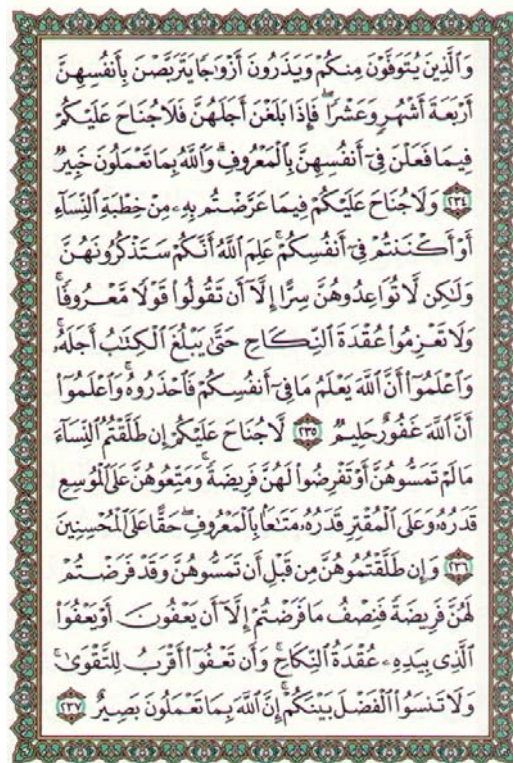 وَٱلَّذِينَ يُتَوَفَّوْنَ مِنكُمْ وَيَذَرُونَ أَزْوَٰجًا يَتَرَبَّصْنَ بِأَنفُسِهِنَّ
أَرْبَعَةَ أَشْهُرٍ وَعَشْرًا ۖ فَإِذَا بَلَغْنَ أَجَلَهُنَّ فَلَا جُنَاحَ عَلَيْكُمْ
فِيمَا فَعَلْنَ فِىٓ أَنفُسِهِنَّ بِٱلْمَعْرُوفِ ۗ وَٱللَّهُ بِمَا تَعْمَلُونَ خَبِيرٌ
٢٣٤ وَلَا جُنَاحَ عَلَيْكُمْ فِيمَا عَرَّضْتُم بِهِۦ مِنْ خِطْبَةِ ٱلنِّسَآءِ
أَوْ أَكْنَنتُمْ فِىٓ أَنفُسِكُمْ ۚ عَلِمَ ٱللَّهُ أَنَّكُمْ سَتَذْكُرُونَهُنَّ
وَلَٰكِن لَّا تُوَاعِدُوهُنَّ سِرًّا إِلَّآ أَن تَقُولُوا۟ قَوْلًا مَّعْرُوفًا ۚ
وَلَا تَعْزِمُوا۟ عُقْدَةَ ٱلنِّكَاحِ حَتَّىٰ يَبْلُغَ ٱلْكِتَٰبُ أَجَلَهُۥ ۚ
وَٱعْلَمُوٓا۟ أَنَّ ٱللَّهَ يَعْلَمُ مَا فِىٓ أَنفُسِكُمْ فَٱحْذَرُوهُ ۚ وَٱعْلَمُوٓا۟
أَنَّ ٱللَّهَ غَفُورٌ حَلِيمٌ ٢٣٥ لَّا جُنَاحَ عَلَيْكُمْ إِن طَلَّقْتُمُ ٱلنِّسَآءَ
مَا لَمْ تَمَسُّوهُنَّ أَوْ تَفْرِضُوا۟ لَهُنَّ فَرِيضَةً ۚ وَمَتِّعُوهُنَّ عَلَى ٱلْمُوسِعِ
قَدَرُهُۥ وَعَلَى ٱلْمُقْتِرِ قَدَرُهُۥ مَتَٰعًۢا بِٱلْمَعْرُوفِ ۖ حَقًّا عَلَى ٱلْمُحْسِنِينَ
٢٣٦ وَإِن طَلَّقْتُمُوهُنَّ مِن قَبْلِ أَن تَمَسُّوهُنَّ وَقَدْ فَرَضْتُمْ
لَهُنَّ فَرِيضَةً فَنِصْفُ مَا فَرَضْتُمْ إِلَّآ أَن يَعْفُونَ أَوْ يَعْفُوَا۟
ٱلَّذِى بِيَدِهِۦ عُقْدَةُ ٱلنِّكَاحِ ۚ وَأَن تَعْفُوٓا۟ أَقْرَبُ لِلتَّقْوَىٰ ۚ
وَلَا تَنسَوُا۟ ٱلْفَضْلَ بَيْنَكُمْ ۚ إِنَّ ٱللَّهَ بِمَا تَعْمَلُونَ بَصِيرٌ ٢٣٧